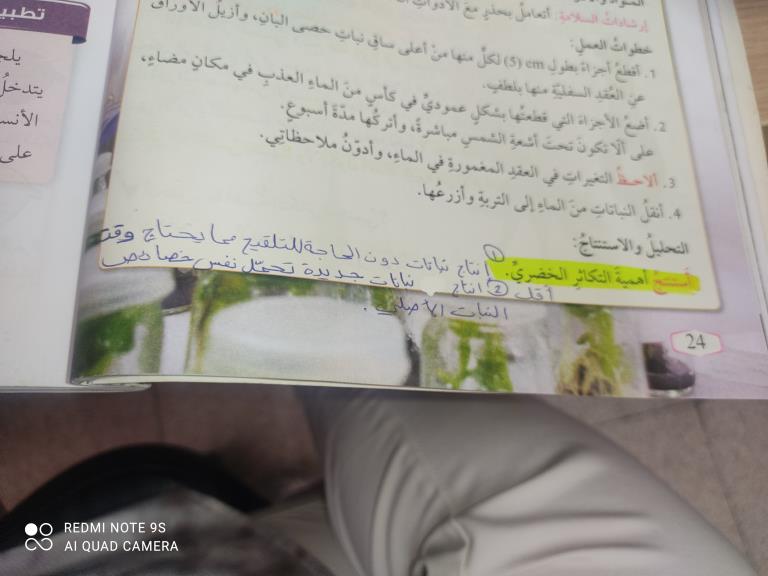 إرشاداتُ السلامةِ: أتعاملُ بحذرٍ معَ الأدواتِ
خطواتُ العملِ:
1. أقطعُ أجزاءً بطولِ (5) cm لكلٍّ منها منْ أعلى ساقِ نباتِ حصى البانِ، وأزيلُ الأوراقَ
عنِ العُقدِ السفليّةِ منها بلطفٍ.
2. أضعُ الأجزاءَ التي قطعتُها بشكلٍ عموديٍّ في كأسٍ منَ الماءِ العذبِ في مكانٍ مضاءٍ،
على ألّا تكونَ تحتَ أشعةِ الشمسِ مباشرةً، وأتركُها مدّةَ أسبوعٍ.
3. ألاحظُ التغيراتِ في العقدِ المغمورةِ في الماءِ، وأدوّنُ ملاحظاتي.
4. أنقلُ النباتاتِ منَ الماءِ إلى التربةِ وأزرعُها.
التحليلُ والاستنتاجُ:
أستنتجُ أهميةَ التكاثرِ الخضريِّ.
① انتاج نباتات دون الحاجة للتلقيح مما يحتاج وقت
أقل ② انتاج نباتات جديدة تحمل نفس خصائص
النبات الأصلي.
24
تطبي
يلج
يتدخلُ
الأنس
على
REDMI NOTE 9S
AI QUAD CAMERA